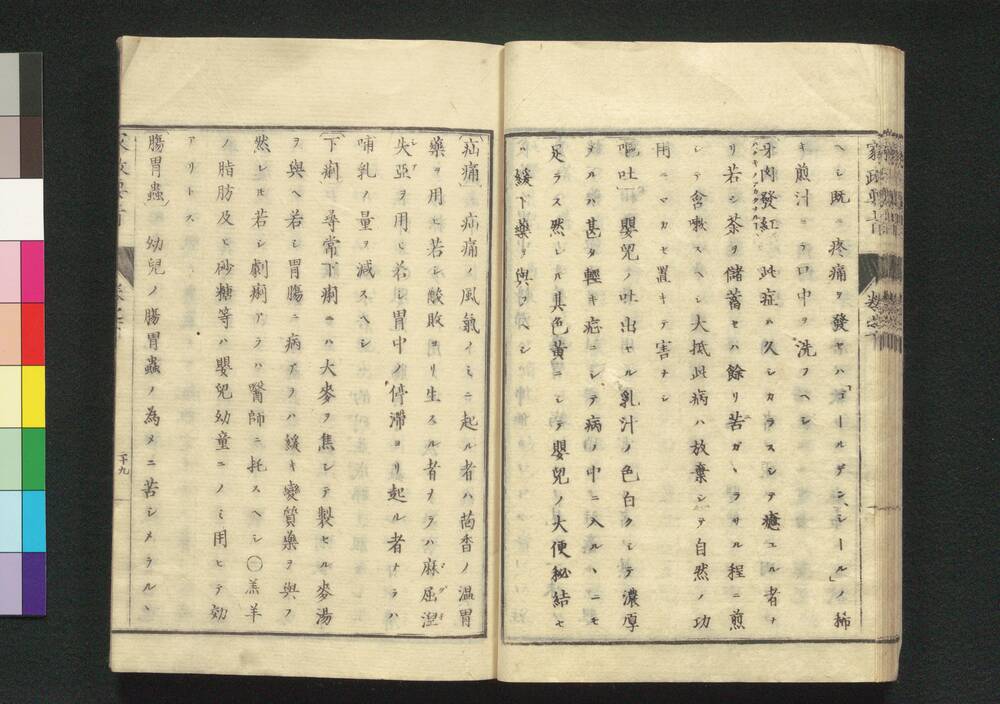 ヘシ既ニ疼痛ヲ發セハ「ゴールデン、シール」ノ
キ煎汁ニテ口中ヲ洗フヘシ
牙肉發紅 此症ハ久シカラスシテ癒ユル者ナ
リ若シ茶ヲ儲蓄セハ餘リ苦ガヽラサル程ニ煎
シテ含嗽スヘシ大抵此病ハ放棄シテ自然ノ功
用ニマカセ置キテ害ナシ
嘔吐 嬰兒ノ吐出セル乳汁ノ色白クシテ濃厚
ナルハ甚タ輕キ症ニシテ病ノ中ニ入ルヽニモ
足ラス然レ𪜈其色黃ニシテ嬰兒ノ大便秘結セ
ハ緩下藥ヲ與フヘシ
疝痛 疝痛ノ風氣イミニ起ル者ハ茴香ノ温胃
藥ヲ用ヒ若シ酸敗ヨリ生スル者ナラハ麻屈涅
失亞ヲ用ヒ若シ胃中ノ停滯ヨリ起ル者ナラハ
哺乳ノ量ヲ減スヘシ
下痢 尋常下痢ニハ大麥ヲ焦シテ製セル麥湯
ヲ與ヘ若シ胃腸ニ病アラハ緩キ變質藥ヲ與フ
然レ𪜈若シ劇痢アラハ醫師ニ托スヘシ〇羔羊
ノ脂肪及ヒ砂糖等ハ嬰兒幼童ニノミ用ヒテ効
アリトス
腸胃蟲 幼兒ノ腸胃蟲ノ為メニ苦シメラルヽ
家政要旨 卷之
十九